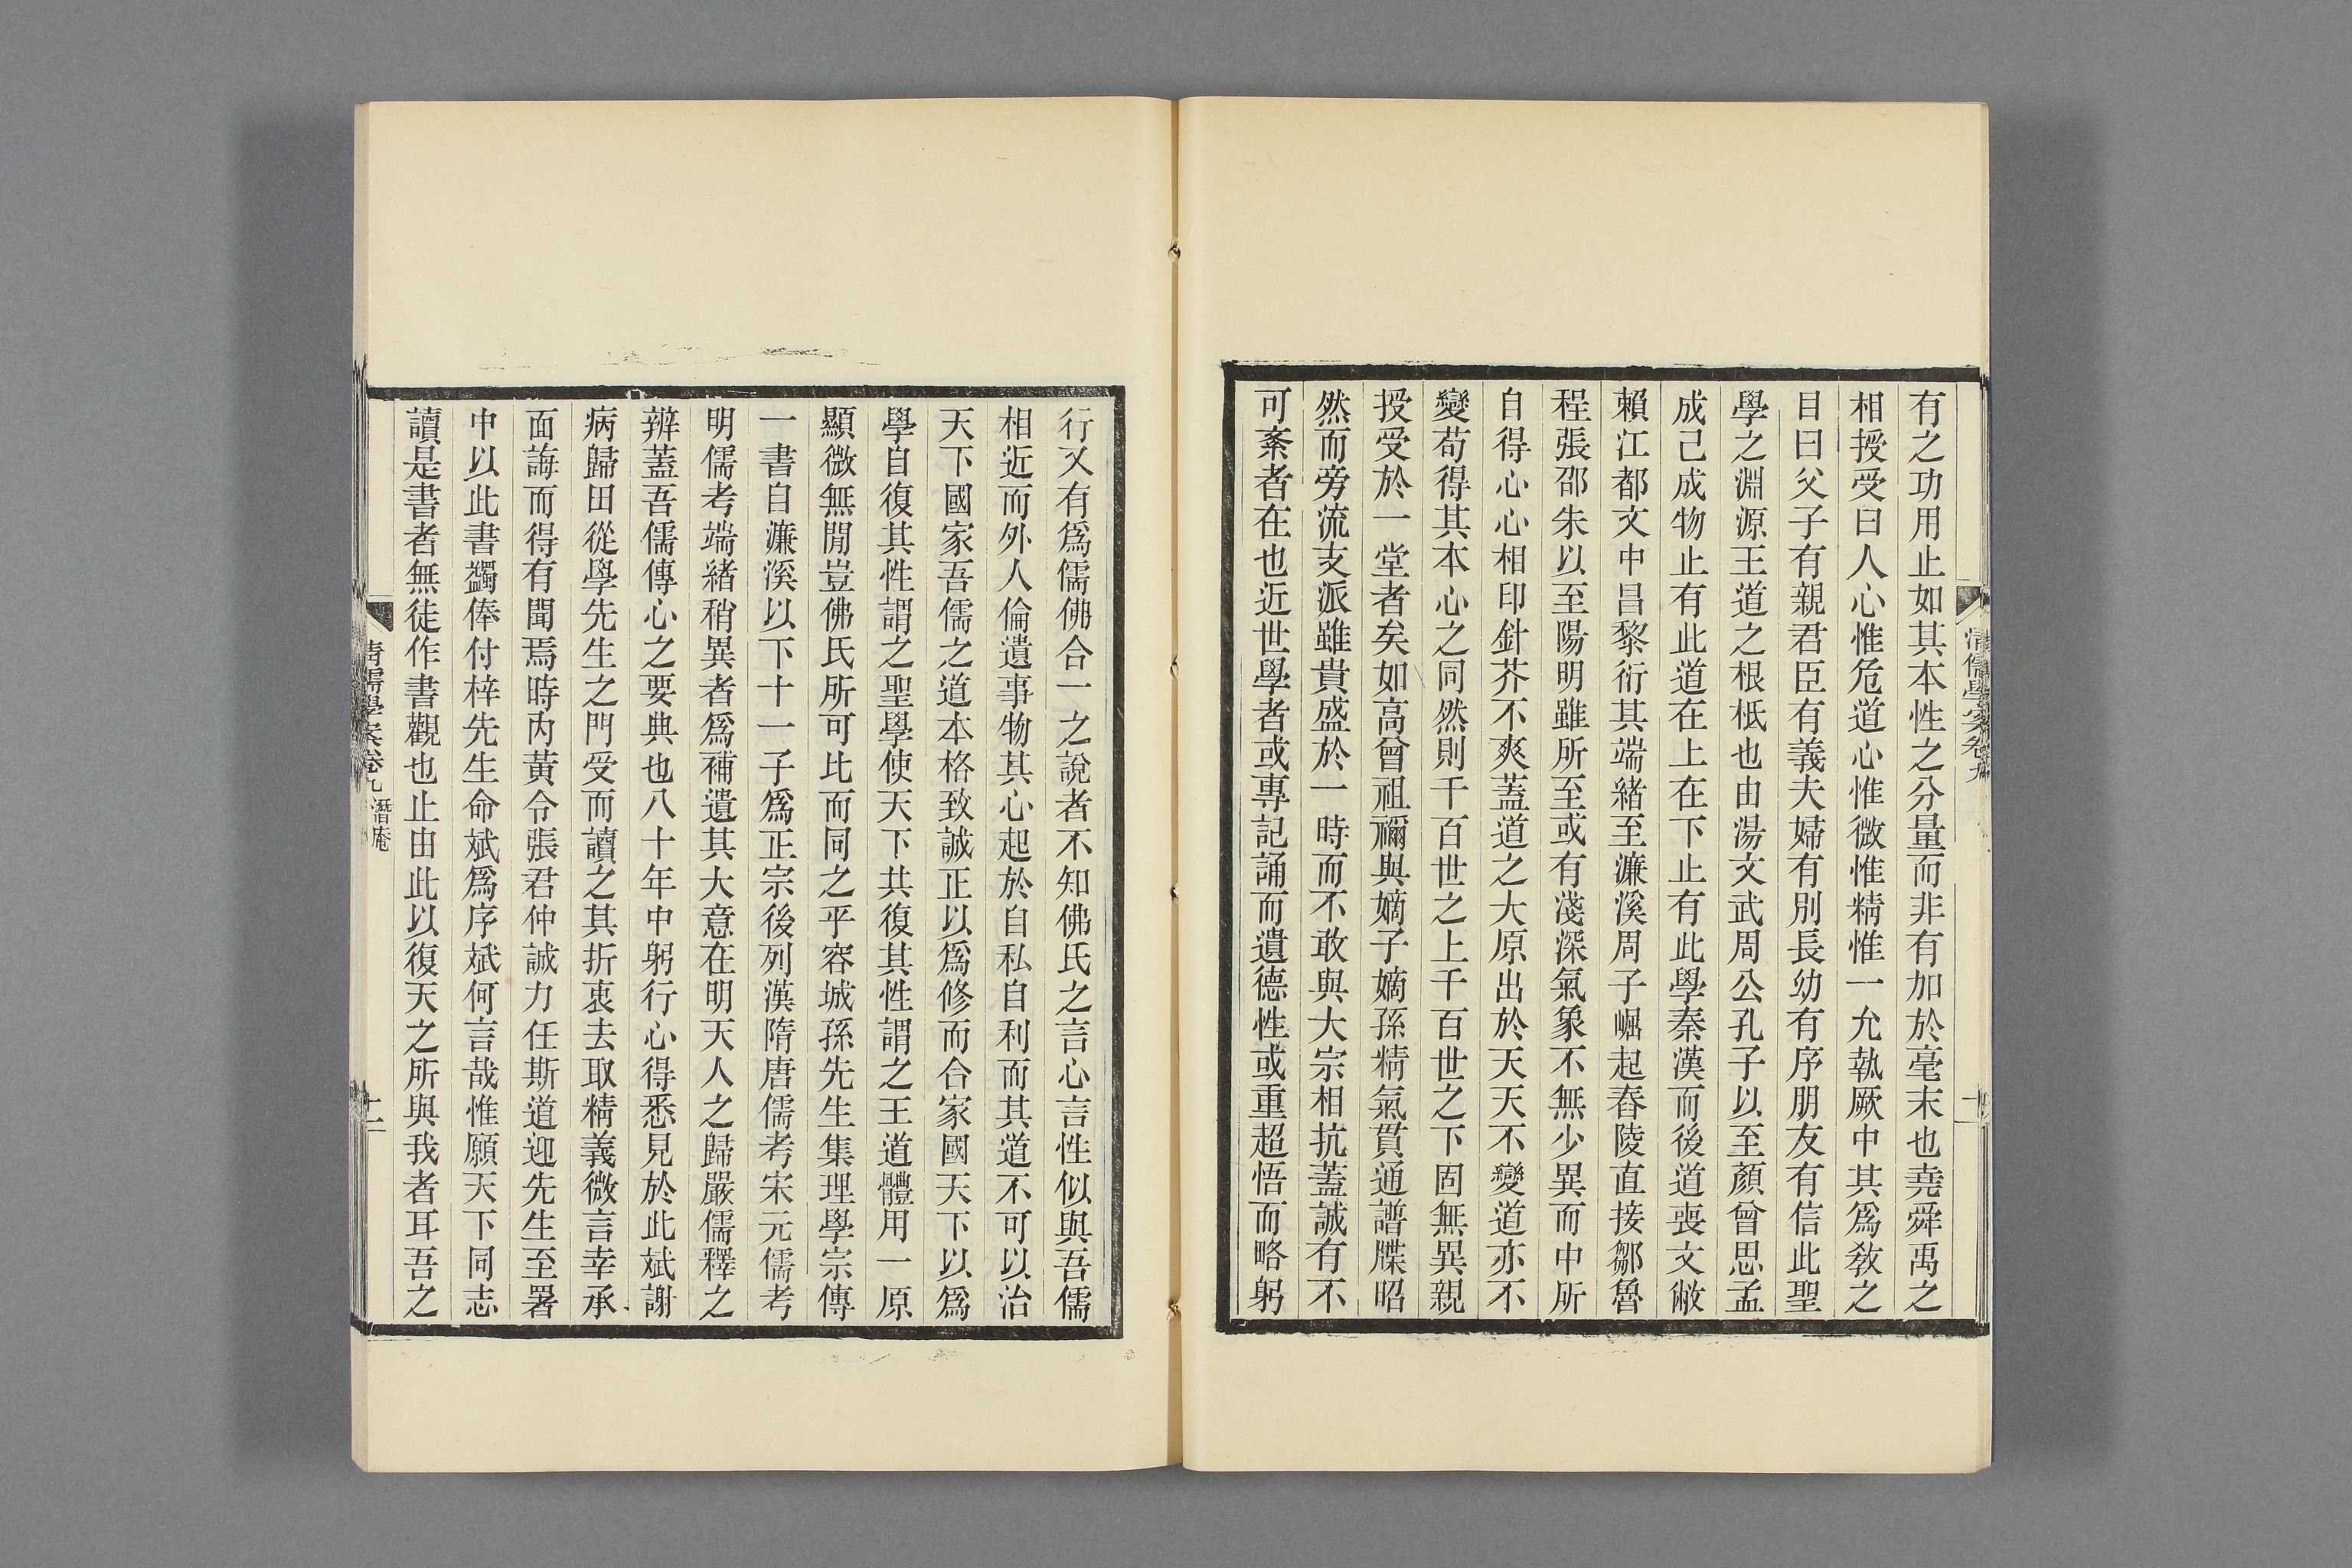 有之功用止如其本性之分量而非有加於毫末也堯舜禹之
相授受曰人心惟危道心惟微惟精惟一允執厥中其爲敎之
目曰父子有親君臣有義夫婦有別長幼有序朋友有信此聖
學之淵源王道之根柢也由湯文武周公孔子以至顏曾思孟
成己成物止有此道在上在下止有此學秦漢而後道喪文敝
賴江都文中昌黎衍其端緒至濂溪周子崛起舂陵直接鄒魯
程張邵朱以至陽明雖所至或有淺深氣象不無少異而中所
自得心心相印針芥不爽蓋道之大原出於天天不變道亦不
變苟得其本心之同然則千百世之上千百世之下固無異親
授受於一堂者矣如高曾祖禰與嫡子嫡孫精氣貫通譜牒昭
然而旁流支派雖貴盛於一時而不敢與大宗相抗蓋誠有不
可紊者在也近世學者或專記誦而遺德性或重超悟而略躬
清儒學案卷九
十一
行又有爲儒佛合一之說者不知佛氏之言心言性似與吾儒
相近而外人倫遺事物其心起於自私自利而其道不可以治
天下國家吾儒之道本格致誠正以爲修而合家國天下以爲
學自復其性謂之聖學使天下共復其性謂之王道體用一原
顯微無閒豈佛氏所可比而同之乎容城孫先生集理學宗傳
一書自濂溪以下十一子爲正宗後列漢隋唐儒考宋元儒考
明儒考端緒稍異者爲補遺其大意在明天人之歸嚴儒釋之
辨蓋吾儒傳心之要典也八十年中躬行心得悉見於此斌謝
病歸田從學先生之門受而讀之其折衷去取精義微言幸承
面誨而得有聞焉時內黃令張君仲誠力任斯道迎先生至署
中以此書蠲俸付梓先生命斌爲序斌何言哉惟願天下同志
讀是書者無徒作書觀也止由此以復天之所與我者耳吾之
清儒學案卷九 潛庵
十二